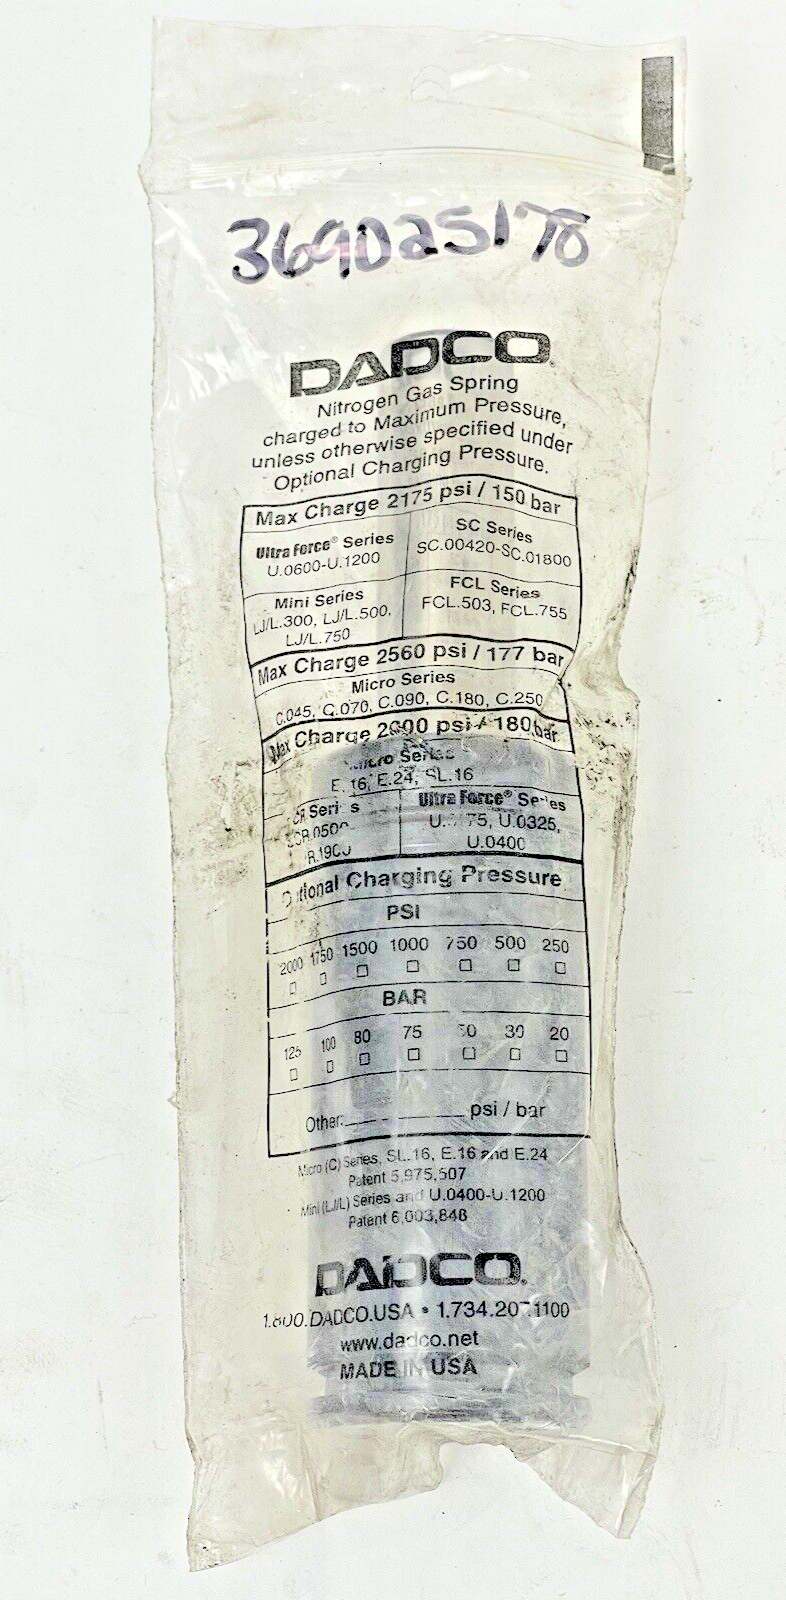 369D25178
DADCO®
Nitrogen Gas Spring
charged to Maximum Pressure,
unless otherwise specified under
Optional Charging Pressure.
Max Charge 2175 psi / 150 bar
Ultra Force® Series
U.0600-U.1200
SC Series
SC.00420-SC.01800
Mini Series
LJ/L.300, LJ/L.500,
LJ/L.750
FCL Series
FCL.503, FCL.755
Max Charge 2560 psi / 177 bar
Micro Series
C.045, C.070, C.090, C.180, C.250
Max Charge psi / 180 bar
Micro Series
E.16, E.24, SL.16
Series
Ultra Force® Series
U.0325,
U.0400
Optional Charging Pressure
PSI
2000 1750 1500 1000 750 500 250
BAR
125 100 80 75 50 30 20
Other: psi / bar
Micro (C) Series, SL.16, E.16 and E.24
Patent 5,975,507
Mini (LJ/L) Series and U.0400-U.1200
Patent 6,003,848
DADCO®
1.800.DADCO.USA • 1.734.207.1100
www.dadco.net
MADE IN USA